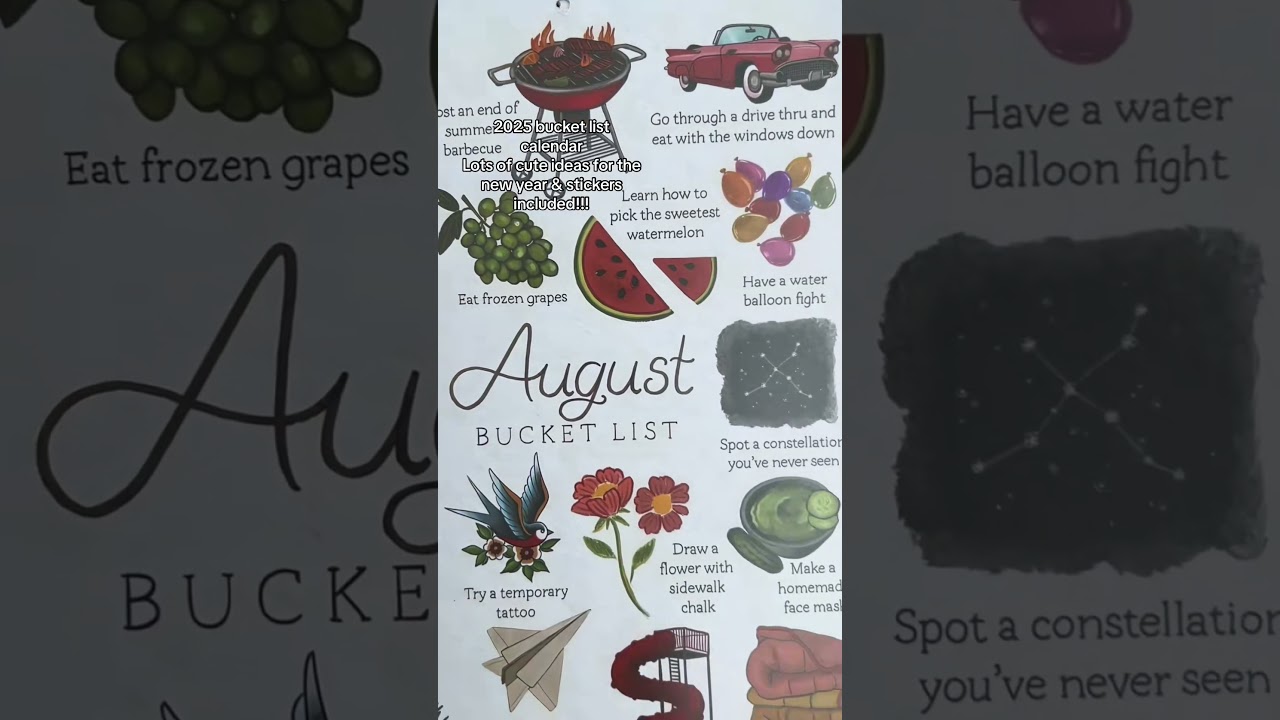 Eat frozen grapes
August
BUCKE
ost an end of
summe
barbecue
2025 bucket list
calendar
Lots of cute ideas for the
new year & stickers
included!!!
Go through a drive thru and
eat with the windows down
Learn how to
pick the sweetest
watermelon
Eat frozen grapes
Have a water
balloon fight
August
BUCKET LIST
Spot a constellation
you've never seen
Try a temporary
tattoo
Draw a
flower with
sidewalk
chalk
Make a
homemad
face mas
Have a water
balloon fight
Spot a constellation
you've never seen